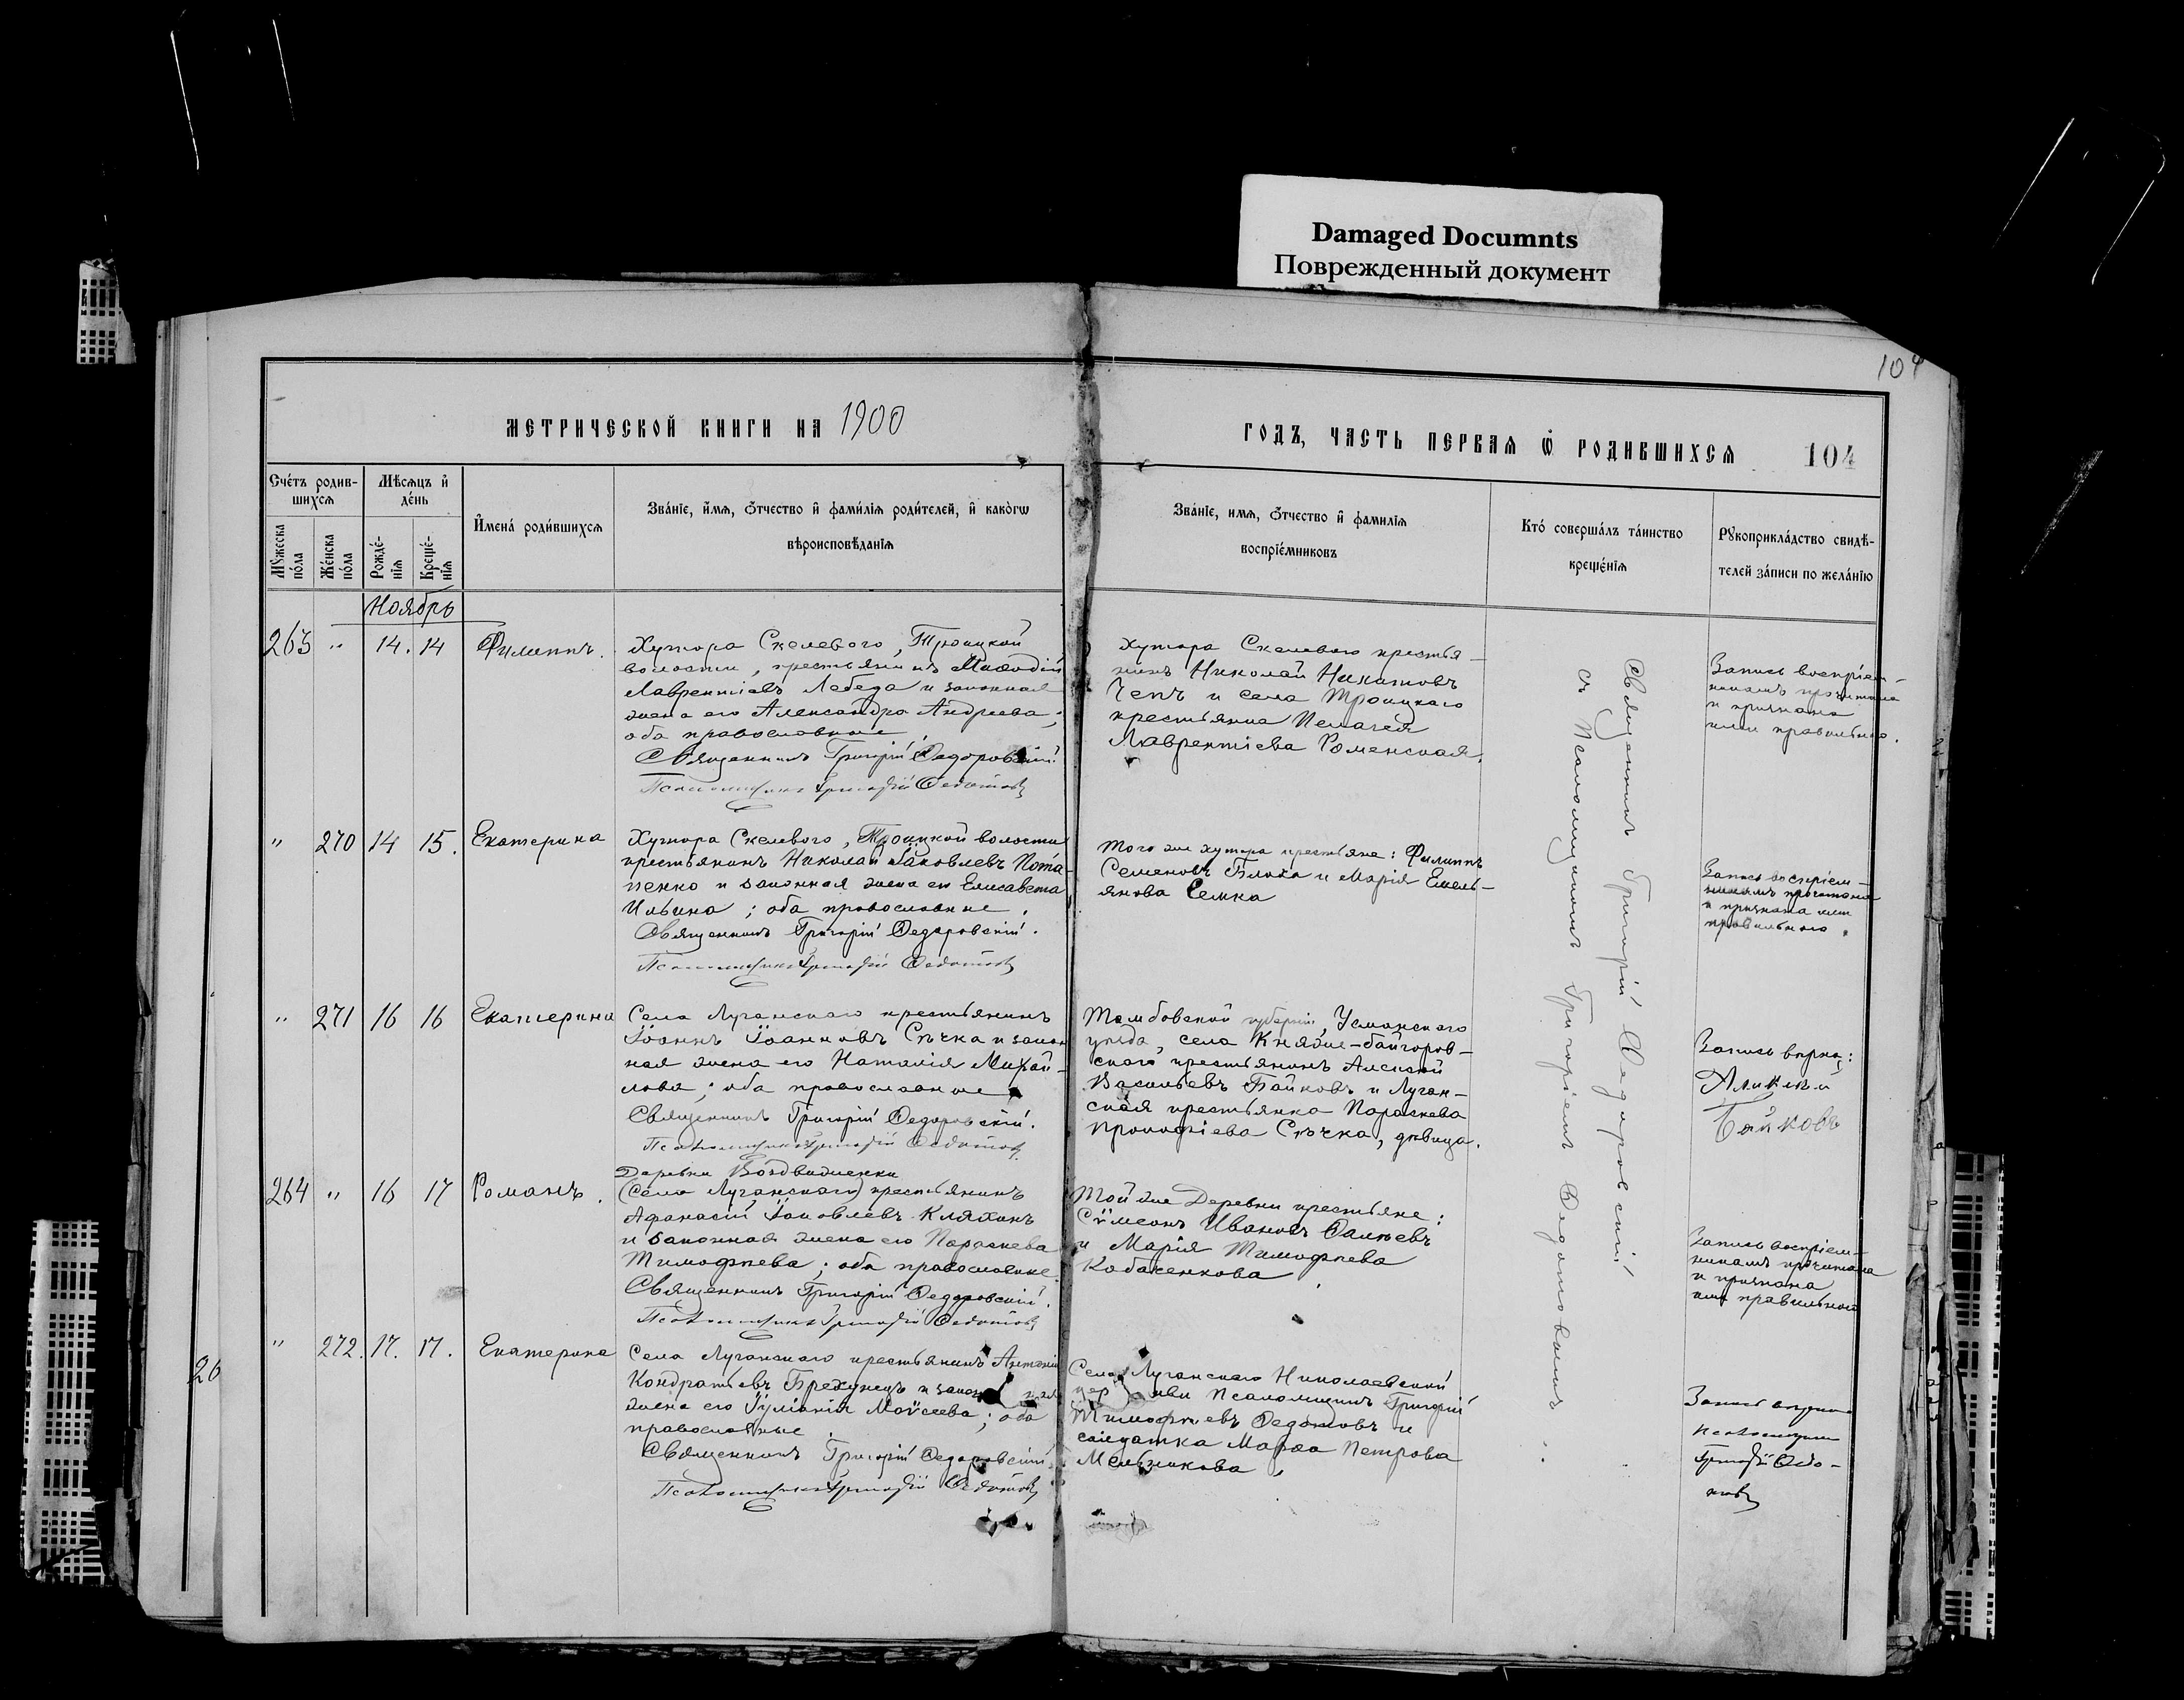 Damaged Documnts
Поврежденный документ
104
МЕТРИЧЕСКОЙ КНИГИ НА 1900
ГОДЪ, ЧАСТЬ ПЕРВАЯ Ѿ РОДИВШИХСЯ 104
Счетъ родив-
шихся
Мꙋжеска
пола
Женска
пола
Мѣсяцъ и
день
Рожде-
нія
Креще-
нія
Имена родившихся
Званіе, имя, ѿчество и фамилія родителей, и какогѡ
вѣроисповѣданія
Званіе, имя, ѿчество и фамилія
воспріемниковъ
Кто совершалъ таинство
крещенія
Рꙋкоприкладство свидѣ-
телей записи по желанію
Ноябрь
263 " 14. 14 Филиппъ.
Хутора Скелевого, Троицкой
волости, крестьянинъ Меѳодій
Лаврентіевъ Лебеда и законная
жена его Александра Андреева;
оба православные
Священникъ Григорій Ѳедоровскій.
Псаломщикъ Григорій Ѳедотовъ
Хутора Скелевого крестья-
нинъ Николай Никитовъ
Чепъ и села Троицкаго
крестьянка Пелагея
Лаврентіева Роменская.
Запись воспріем-
никамъ прочитана
и признана
ими правильно.
" 270 14 15. Екатерина
Хутора Скелевого, Троицкой волости
крестьянинъ Николай Іаковлевъ Пота-
пенко и законная жена его Елисавета
Ильина; оба православные.
Священникъ Григорій Ѳедоровскій.
Псаломщикъ Григорій Ѳедотовъ
Того же хутора крестьяне: Филиппъ
Семеновъ Блоха и Марія Емель-
янова Семка
Запись воспріем-
никамъ прочитана
и признана ими
правильною.
" 271 16 16 Екатерина
Села Луганскаго крестьянинъ
Іоаннъ Іоанновъ Сѣчка и закон
ная жена его Наталія Михай-
лова; оба православные
Священникъ Григорій Ѳедоровскій.
Псаломщикъ Григорій Ѳедотовъ
Тамбовской губерніи, Усманскаго
уѣзда, села Княже-байгоров-
скаго крестьянинъ Алексѣй
Васильевъ Байковъ и Луган-
ская крестьянка Параскева
Прокофіева Сѣчка, дѣвица.
Запись вѣрна:
Алексѣй
Байковъ
Деревни Воздвиженки
264 " 16 17 Романъ.
(Села Луганскаго) крестьянинъ
Афанасій Іаковлевъ Кляхинъ
и законная жена его Параскева
Тимофѣева; оба православные.
Священникъ Григорій Ѳедоровскій.
Псаломщикъ Григорій Ѳедотовъ
Той же Деревни крестьяне:
Сѵмеонъ Ивановъ
и Марія Тимофѣева
Кобаченкова
Запись воспріем-
никамъ прочитана
и признана
ими правильной
" 272. 17. 17. Екатерина
Села Луганскаго крестьянинъ Антоній
Кондратьевъ Брехунецъ и закон ная
жена его Іуліанія Моѵсеева; оба
православные.
Священникъ Григорій Ѳедоровскій.
Псаломщикъ Григорій Ѳедотовъ
Села Луганскаго Николаевской
цер кви Псаломщикъ Григорій
Тимофѣевъ Ѳедотовъ и
солдатка Марѳа Петрова
Мельникова.
Запись вѣрна
Псаломщикъ
Григорій Ѳедо-
товъ
Священникъ Григорій Ѳедоровскій
съ Псаломщикомъ Григоріемъ Ѳедотовымъ.
26